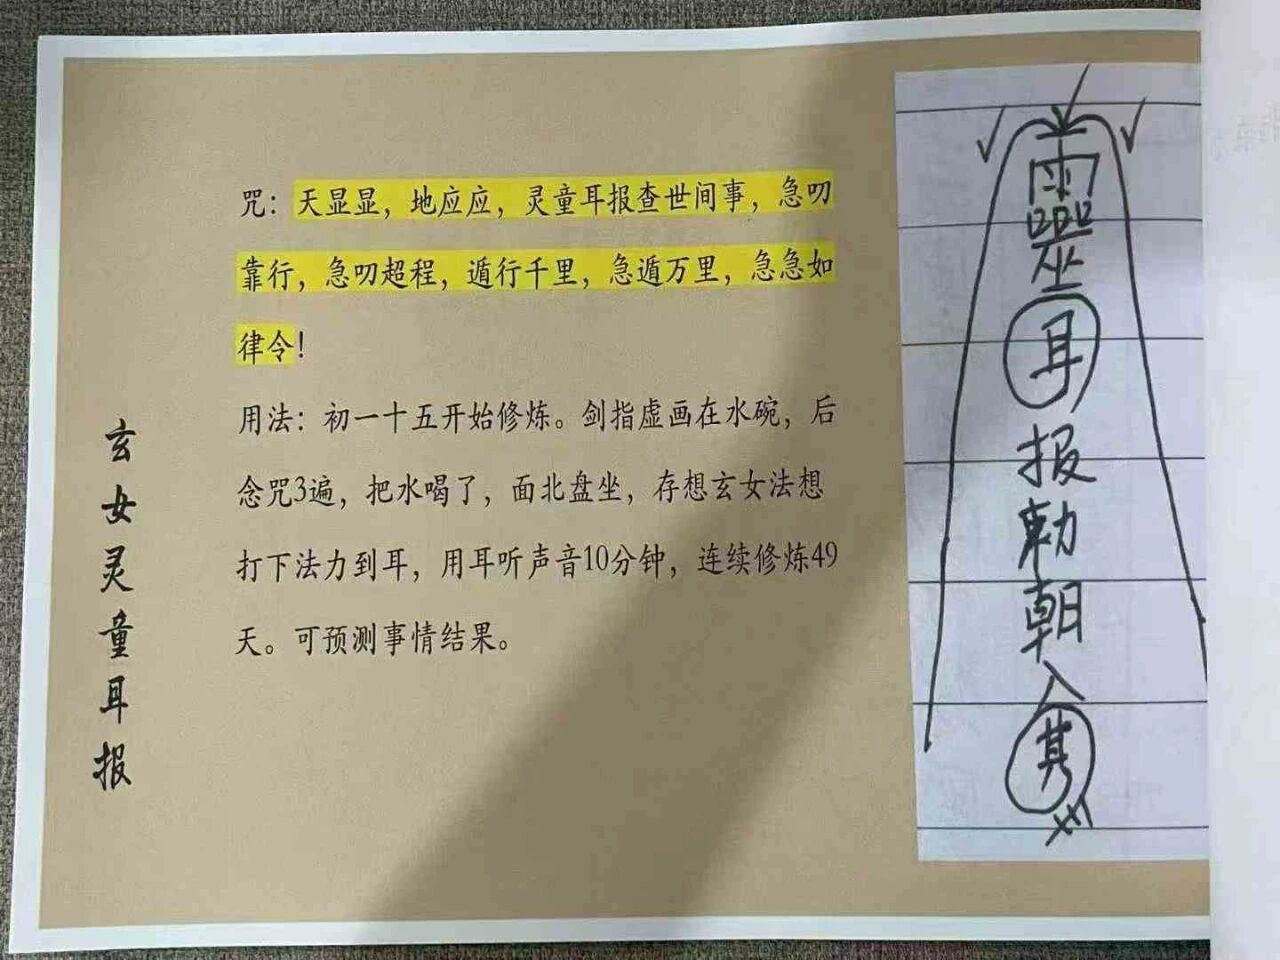 玄女灵童耳报
咒：天显显，地应应，灵童耳报查世间事，急叨
靠行，急叨超程，遁行千里，急遁万里，急急如
律令！
用法：初一十五开始修炼。剑指虚画在水碗，后
念咒3遍，把水喝了，面北盘坐，存想玄女法想
打下法力到耳，用耳听声音10分钟，连续修炼49
天。可预测事情结果。
耳
报
勅
朝
入